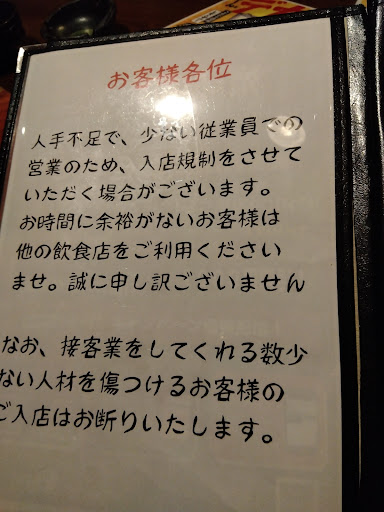 お客様各位
人手不足で、少ない従業員での
営業のため、入店規制をさせて
いただく場合がございます。
お時間に余裕がないお客様は
他の飲食店をご利用ください
ませ。誠に申し訳ございません
なお、接客業をしてくれる数少
ない人材を傷つけるお客様の
ご入店はお断りいたします。